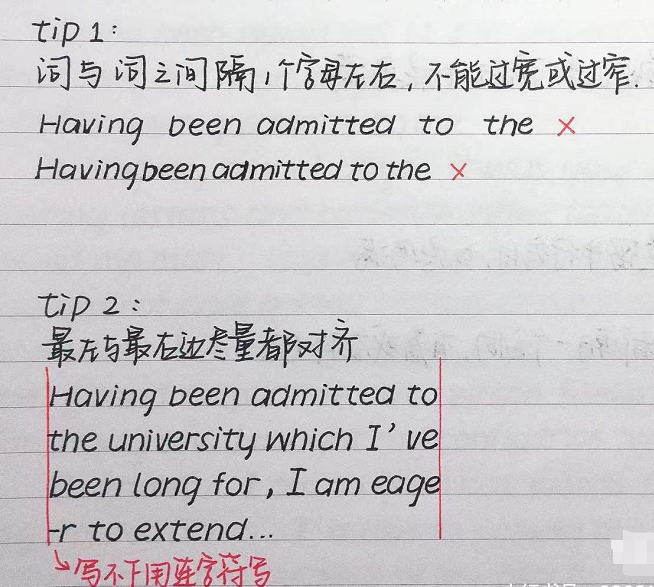 tip 1:
词与词之间隔1个字母左右,不能过宽或过窄.
Having been admitted to the ×
Havingbeenadmittedtothe ×
tip 2:
最左与最右边尽量都对齐
Having been admitted to
the university which I've
been long for, I am eage
-r to extend...
写不下用连字符写